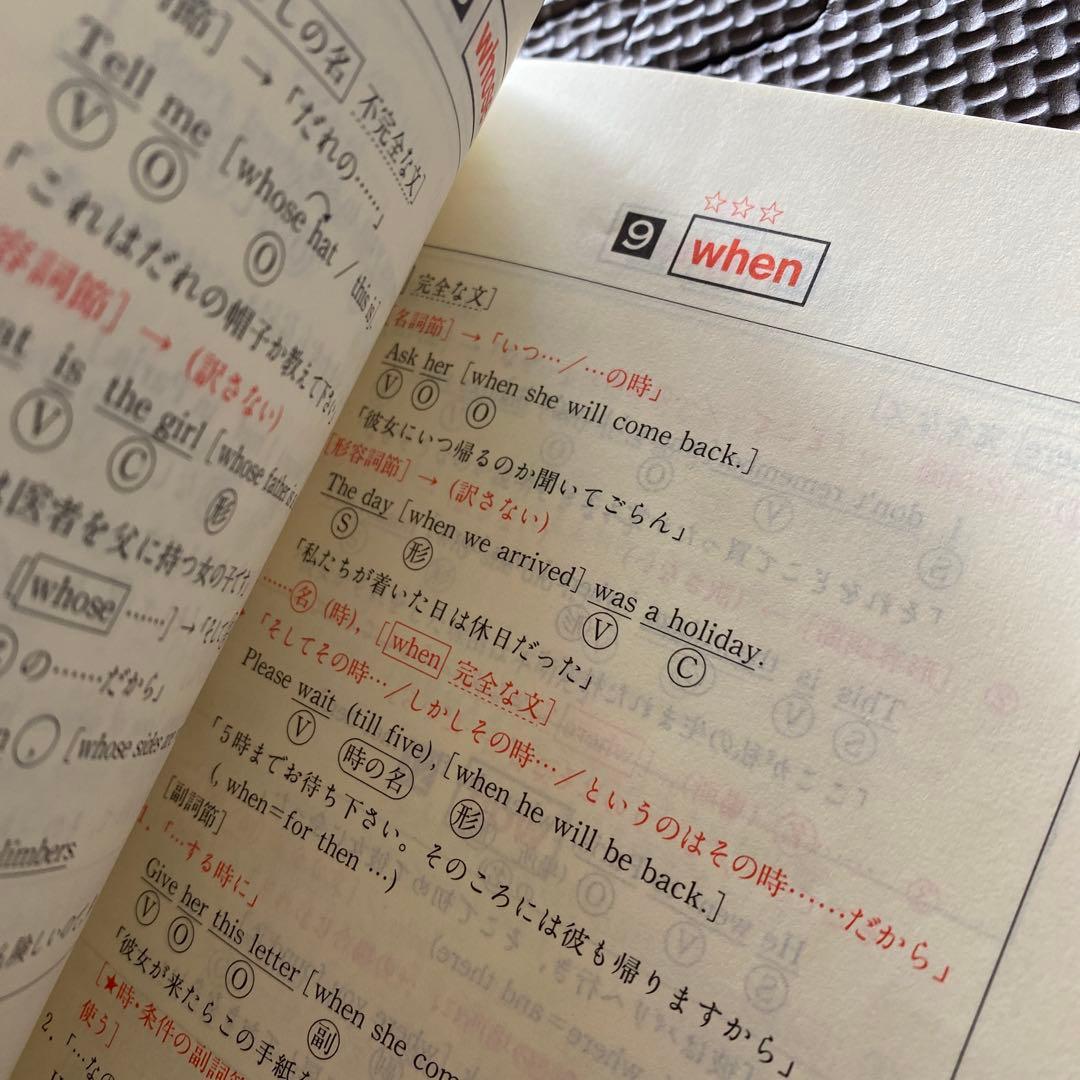 しの名 不完全な文]
節] → 「だれの……」
Tell me [whose hat / this is].
V O O
「これはだれの帽子か教えて下さい
容詞節] → (訳さない)
is the girl [whose father is
V C 形
医者を父に持つ女の子です
[whose ……] →
の……だから」
[whose sides are
☆☆☆
9 when
完全な文]
[名詞節] → 「いつ…/…の時」
Ask her [when she will come back.]
V O O
「彼女にいつ帰るのか聞いてごらん」
[形容詞節] → (訳さない)
The day [when we arrived] was a holiday.
S 形 V C
「私たちが着いた日は休日だった」
……名 (時), [when 完全な文]
「そしてその時…/しかしその時…/というのはその時……だから」
Please wait (till five), [when he will be back.]
V 時の名 形
「5時までお待ち下さい。そのころには彼も帰りますから」
(, when=for then …)
[副詞節]
1. 「…する時に」
Give her this letter [when she com
V O O 副
「彼女が来たらこの手紙
[★時・条件の副詞節
使う]
2. 「…な